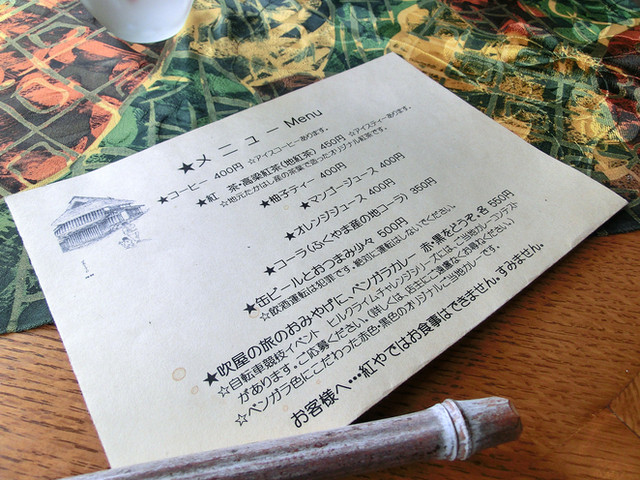 ★メニュー Menu
★コーヒー 400円 ☆アイスコーヒーあります。
★紅 茶・高梁紅茶(地紅茶) 450円 ☆アイスティーあります。
☆地元たかはし産の茶葉で造ったオリジナル紅茶です。
★柚子ティー 400円
★マンゴージュース 400円
★オレンジジュース 400円
★コーラ(ふくやま産の地コーラ) 350円
★缶ビールとおつまみ少々 500円
☆飲酒運転は犯罪です。絶対に運転はしないでください。
★吹屋の旅のおみやげに、ベンガラカレー 赤・黒をどうぞ。各 550円
☆自転車競技イベント ヒルクライムチャレンジシリーズには、ご当地カレーコンテスト
があります。ご応募ください。(詳しくは、店主にご遠慮なくお尋ねください)
☆ベンガラ色にこだわった赤色・黒色のオリジナルご当地カレーです。
お客様へ…紅やではお食事はできません。すみません。